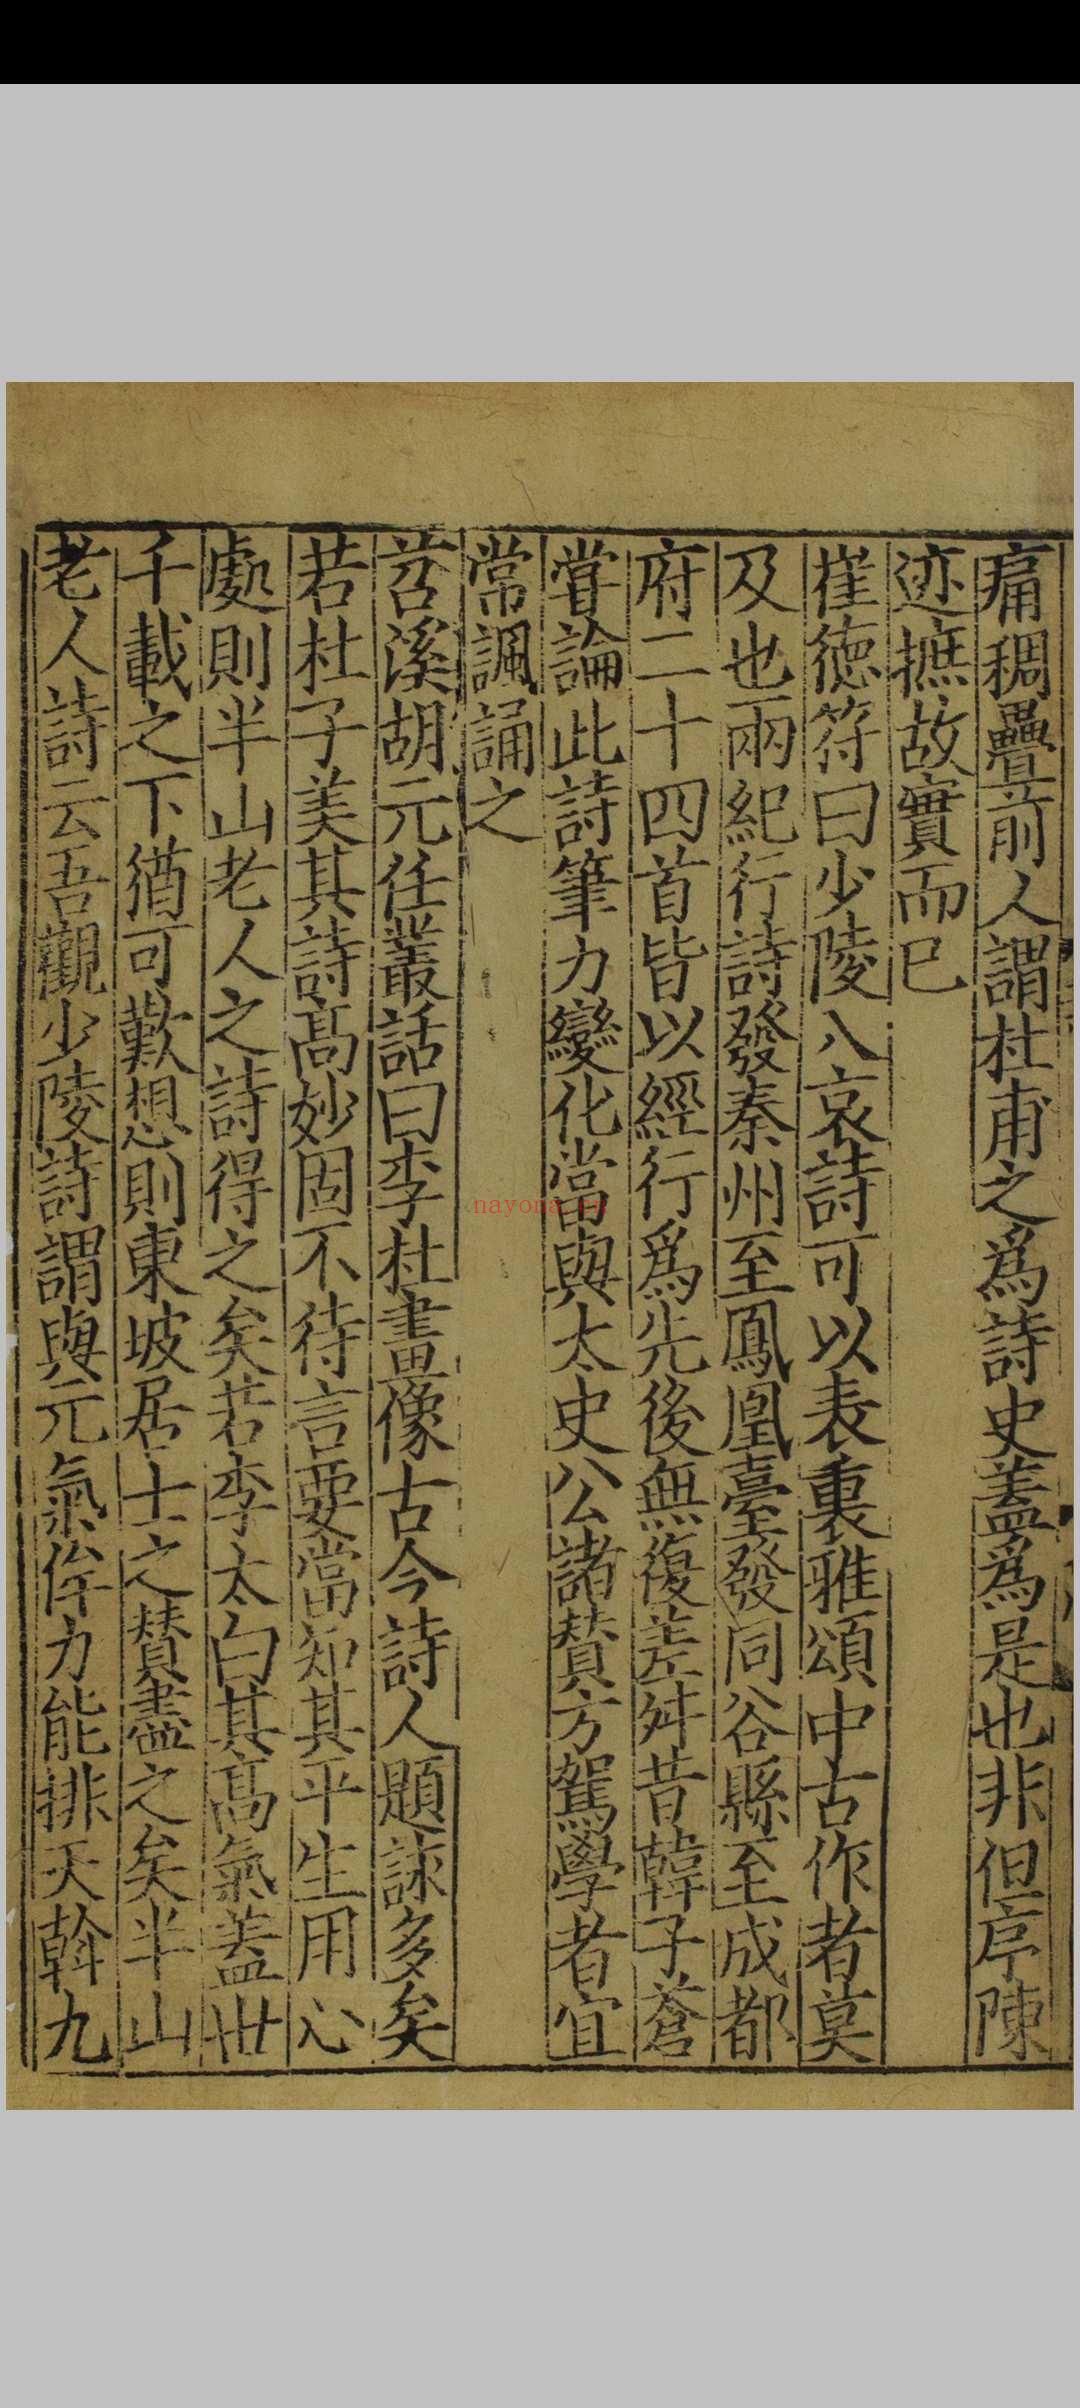 痛稠疊前人謂杜甫之爲詩史蓋爲是也非但序陳
迹摭故實而已
崔徳符曰少陵八哀詩可以表裏雅頌中古作者莫
及也兩紀行詩發秦州至鳳凰臺發同谷縣至成都
府二十四首皆以經行爲先後無復差舛昔韓子蒼
甞論此詩筆力變化當與太史公諸賛方駕學者宜
常諷誦之
苕溪胡元任叢話曰李杜畫像古今詩人題詠多矣
若杜子美其詩高妙固不待言要當知其平生用心
處則半山老人之詩得之矣若李太白其高氣蓋丗
千載之下猶可歎想則東坡居士之賛盡之矣半山
老人詩云吾觀少陵詩謂與元氣侔力能排天斡九
nayona.cn